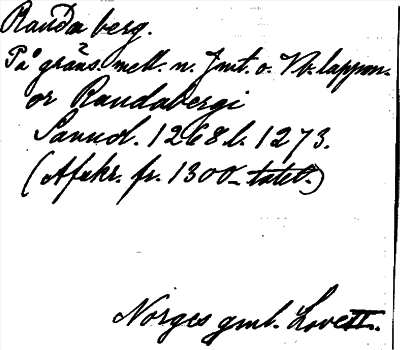 Rauða berg.
På gräns. mell. n. Jmt. o. Vb. lappm.
or Raudabergi
Sannol. 1268 l. 1273.
(Afskr. fr. 1300-talet.)
Norges gml. Love II.